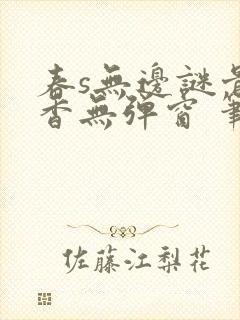 春s無邊謎
香無彈窗 筆
佐藤江梨花